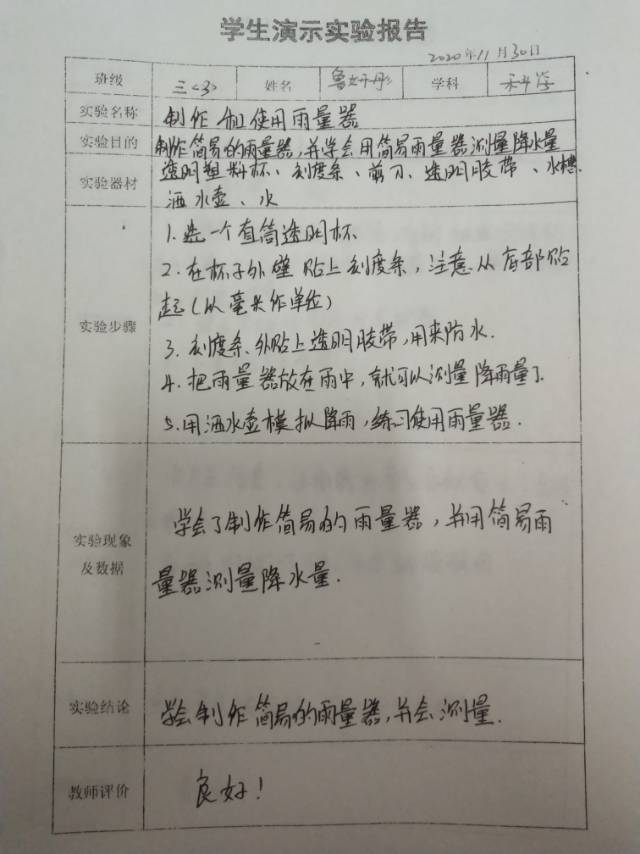 学生演示实验报告
2020年11月30日
班级 三<3> 姓名 学科 科学
实验名称 制作和使用雨量器
实验目的 制作简易的雨量器,并学会用简易雨量器测量降水量
实验器材 透明塑料杯、刻度条、剪刀、透明胶带、水槽
洒水壶、水
实验步骤
1.选一个直筒透明杯
2.在杯子外壁贴上刻度条,注意从底部贴
起(以毫米作单位)
3.刻度条外贴上透明胶带,用来防水.
4.把雨量器放在雨中,就可以测量降雨量了.
5.用洒水壶模拟降雨,练习使用雨量器.
实验现象
及数据
学会了制作简易的雨量器,并用简易雨
量器测量降水量.
实验结论 学会制作简易的雨量器,并会测量.
教师评价 良好!